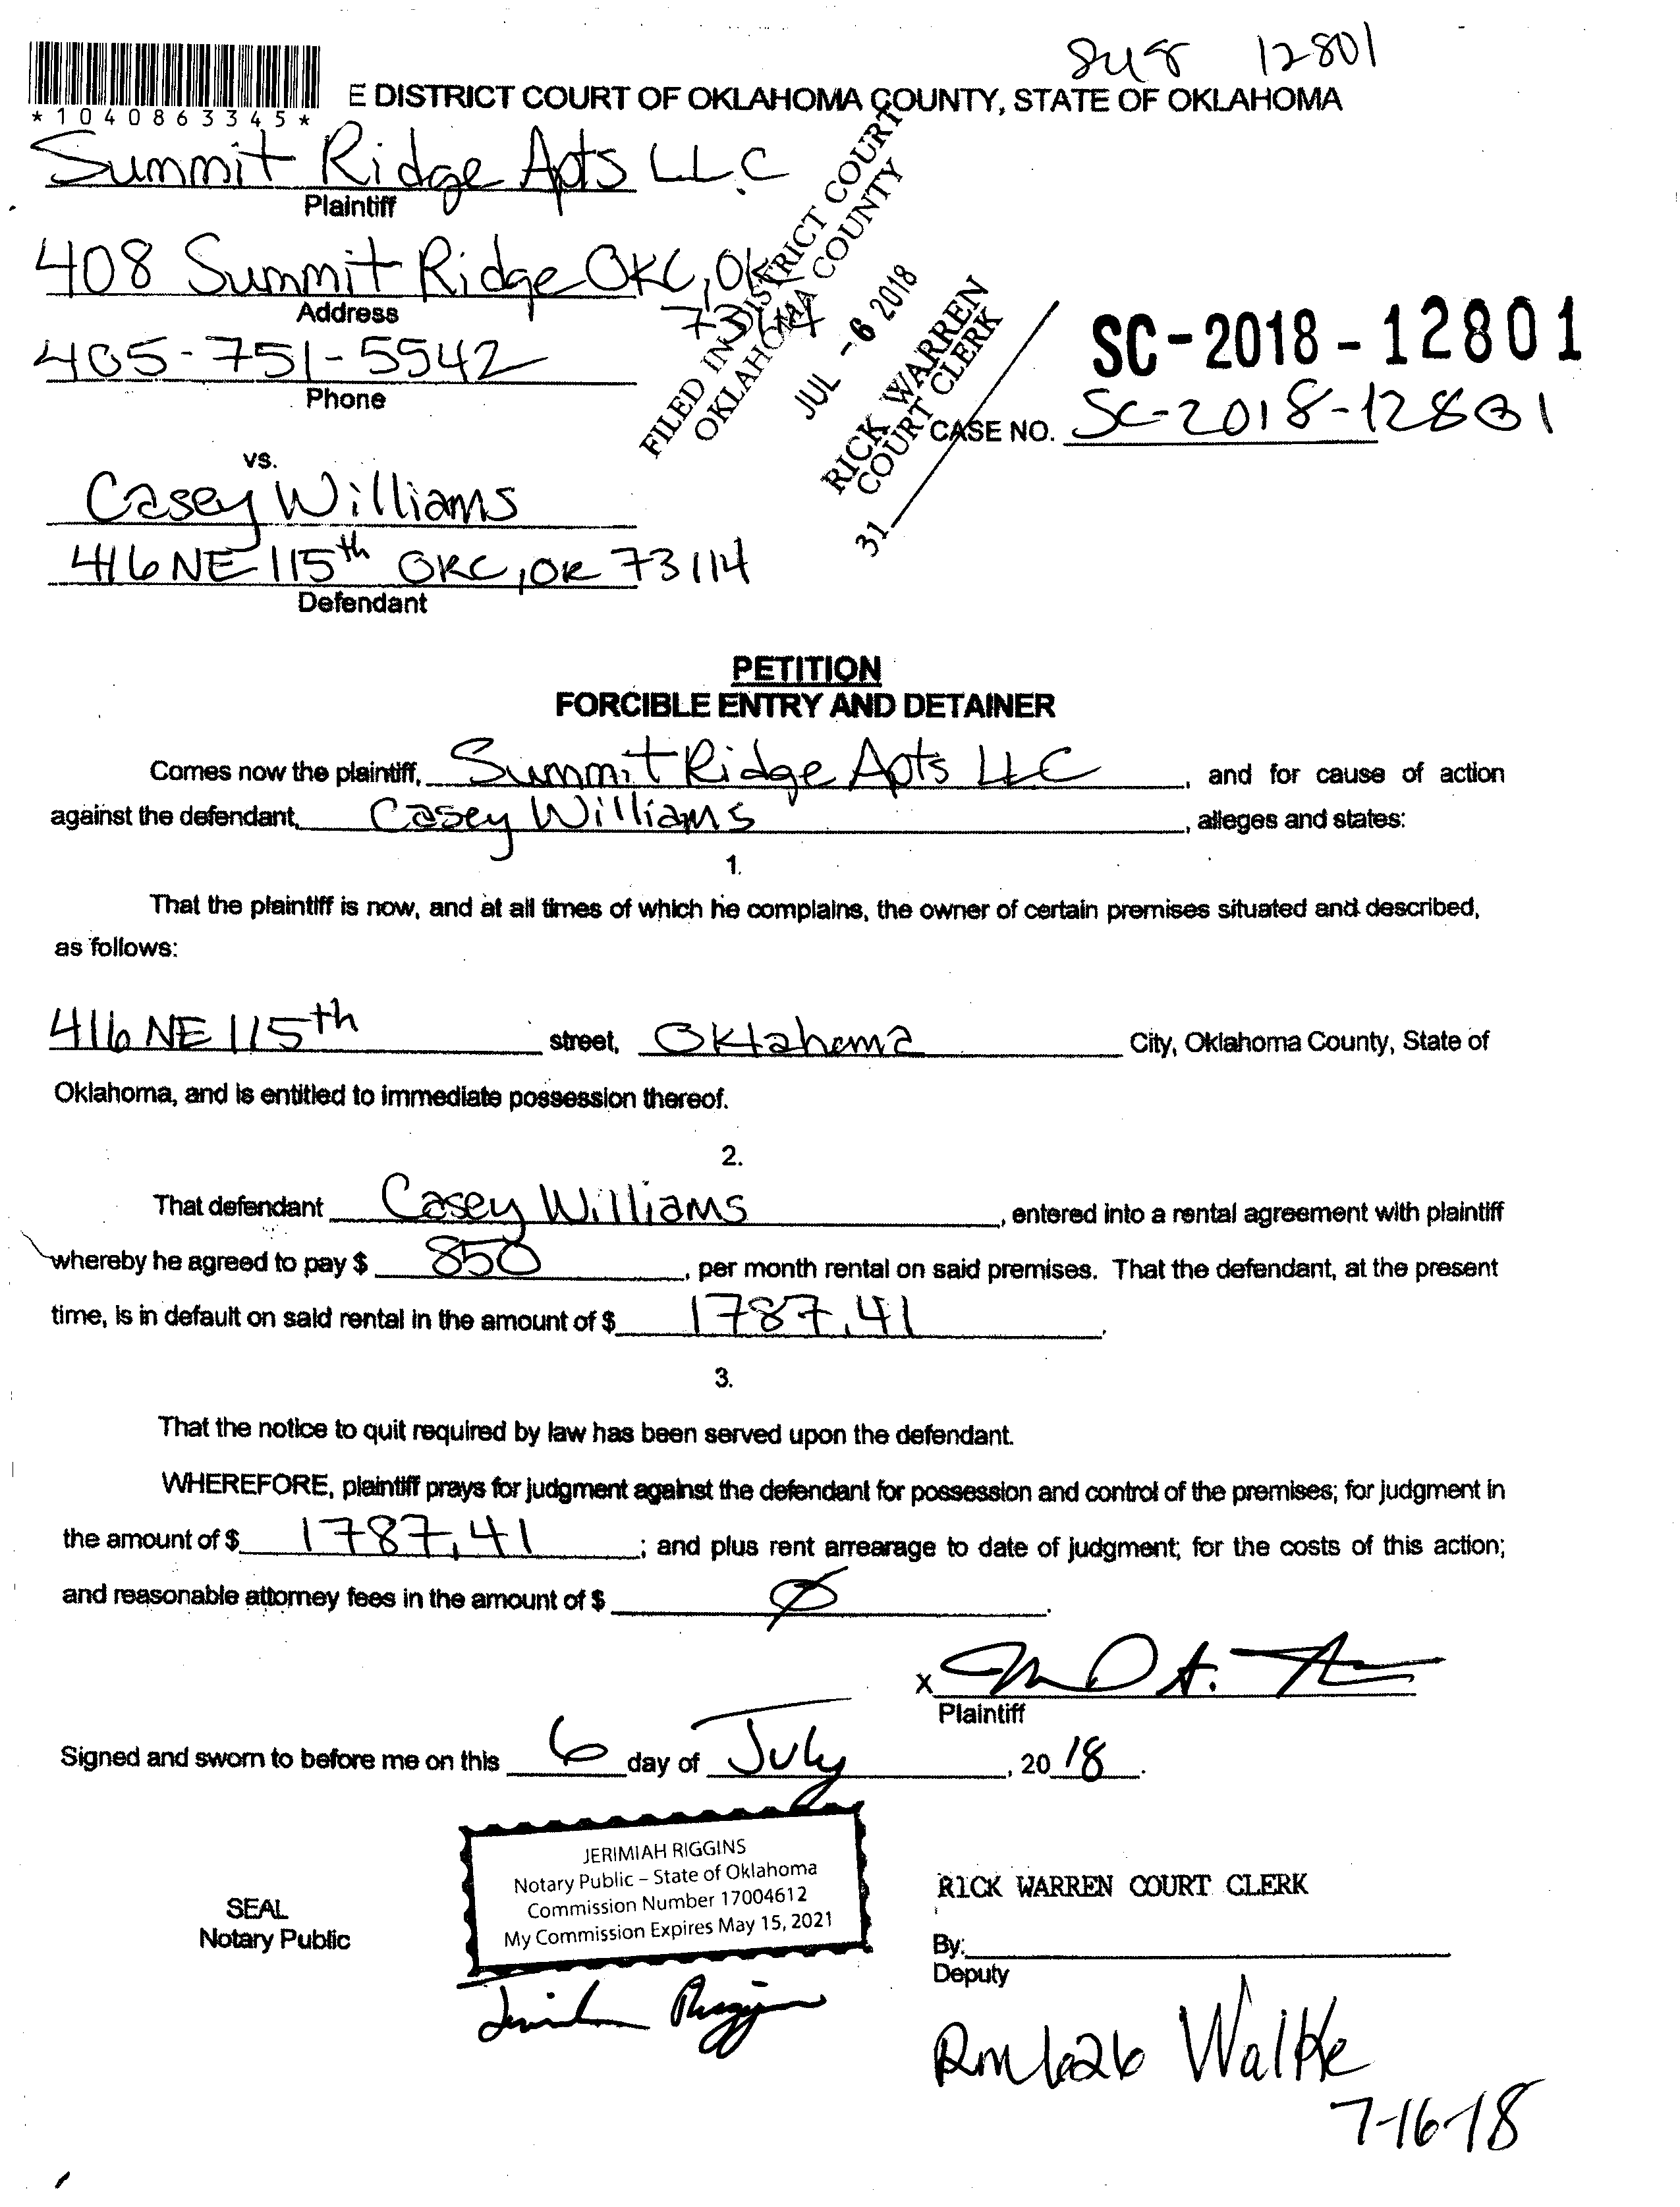 12801
*1040863345*
E DISTRICT COURT OF OKLAHOMA COUNTY, STATE OF OKLAHOMA
Summit Ridge Apts LLC
Plaintiff
408 Summit Ridge OKC, OK
73114
Address
405-751-5542
Phone
FILED IN DISTRICT COURT
OKLAHOMA COUNTY
JUL -6 2018
RICK WARREN
COURT CLERK
31
SC-2018-12801
CASE NO. SC-2018-12801
vs.
Casey Williams
416 NE 115th OKC, OK 73114
Defendant
PETITION
FORCIBLE ENTRY AND DETAINER
Comes now the plaintiff, Summit Ridge Apts LLC, and for cause of action
against the defendant, Casey Williams, alleges and states:
1.
That the plaintiff is now, and at all times of which he complains, the owner of certain premises situated and described,
as follows:
416 NE 115th street, Oklahoma City, Oklahoma County, State of
Oklahoma, and is entitled to immediate possession thereof.
2.
That defendant Casey Williams, entered into a rental agreement with plaintiff
whereby he agreed to pay $ 850, per month rental on said premises. That the defendant, at the present
time, is in default on said rental in the amount of $ 1787.41.
3.
That the notice to quit required by law has been served upon the defendant.
WHEREFORE, plaintiff prays for judgment against the defendant for possession and control of the premises; for judgment in
the amount of $ 1787.41; and plus rent arrearage to date of judgment; for the costs of this action;
and reasonable attorney fees in the amount of $ Ø.
X
Plaintiff
Signed and sworn to before me on this 6 day of July, 2018.
JERIMIAH RIGGINS
Notary Public – State of Oklahoma
Commission Number 17004612
My Commission Expires May 15, 2021
SEAL
Notary Public
RICK WARREN COURT CLERK
By:
Deputy
Rm 626 Walke
7-16-18